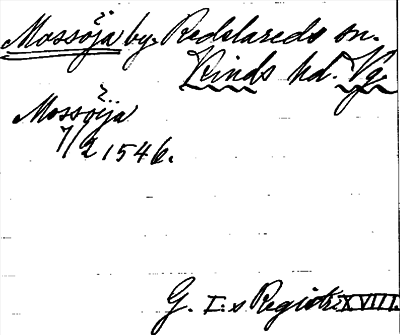 Mossöja by. Redslareds sn.
Kinds hd. Vg.
Mossöija
7/2 1546.
G. I:s Registr. XVIII.